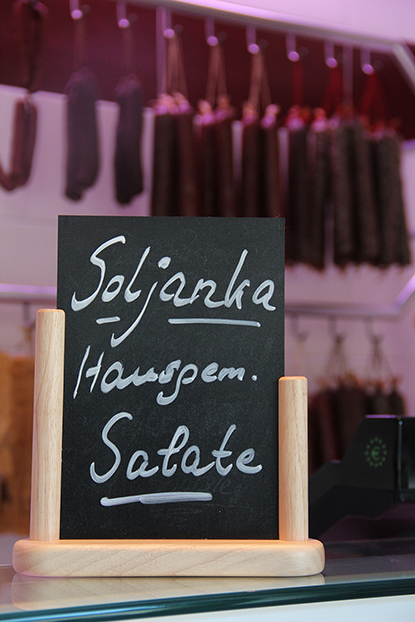 Soljanka
Hausgem.
Salate